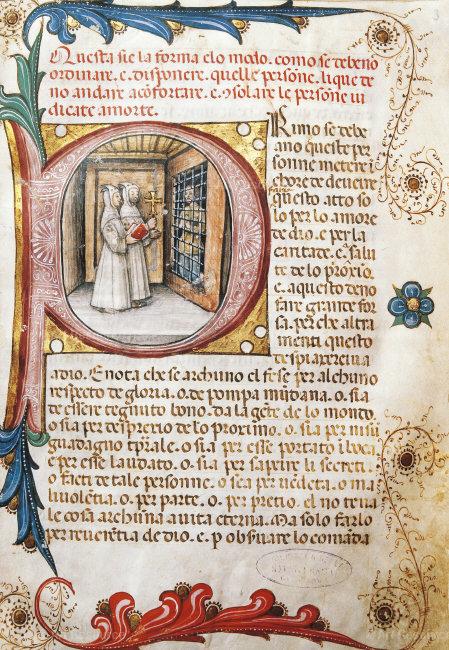 Questa sie la forma elo modo. como se debeno
ordinare. e. disponere. quelle persone. li que de
no andare a cōfortare. e. ꝯsolare le persone iu
dicate a morte.
Rimo se debe
ano queste per
sonne metere i
chore de devere
fare
questo atto so
lo per lo amore
de dio. e per la
caritate. e. salu
te de lo proximo.
e. a questo deno
fare grande for
sa. perche altra
menti questo
despiacereiv a
a dio. E nota che se archuno el fese per alchuno
respecto de gloria. o. de pompa mūdana. o. sia
de essere tegnuto bono. da la gēte de lo mondo.
o sia per despresio de lo proximo. o sia per nisū
guadagno tp̄rale. o sia per esse portato i boca.
per esse laudato. o. sia per sapere li secreti.
o facti de tale persone. o sea per vēdeta. o ma
livolētia. o. per parte. o. per pretio. el no te va
le cosa archuna a vita eterna. Ma solo farlo
per reverētia de dio. e. p observare lo comāda